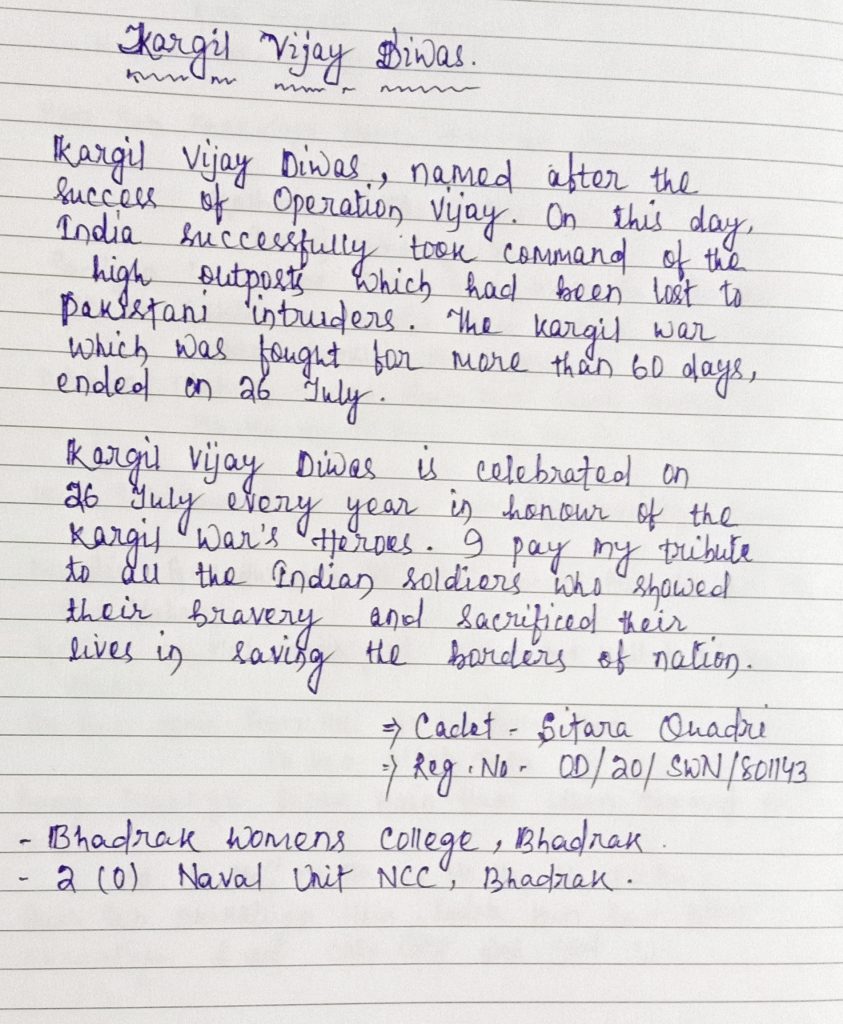 Kargil Vijay Diwas.
Kargil Vijay Diwas, named after the
success of Operation Vijay. On this day,
India successfully took command of the
high outposts which had been lost to
Pakistani intruders. The Kargil war
which was fought for more than 60 days,
ended on 26 July.
Kargil Vijay Diwas is celebrated on
26 July every year in honour of the
Kargil War's Heroes. I pay my tribute
to all the Indian soldiers who showed
their bravery and sacrificed their
lives in saving the borders of nation.
⇒ Cadet - Sitara Quadri
⇒ Reg. No - OD/20/SWN/801143
- Bhadrak Womens College, Bhadrak.
- 2 (O) Naval Unit NCC, Bhadrak.